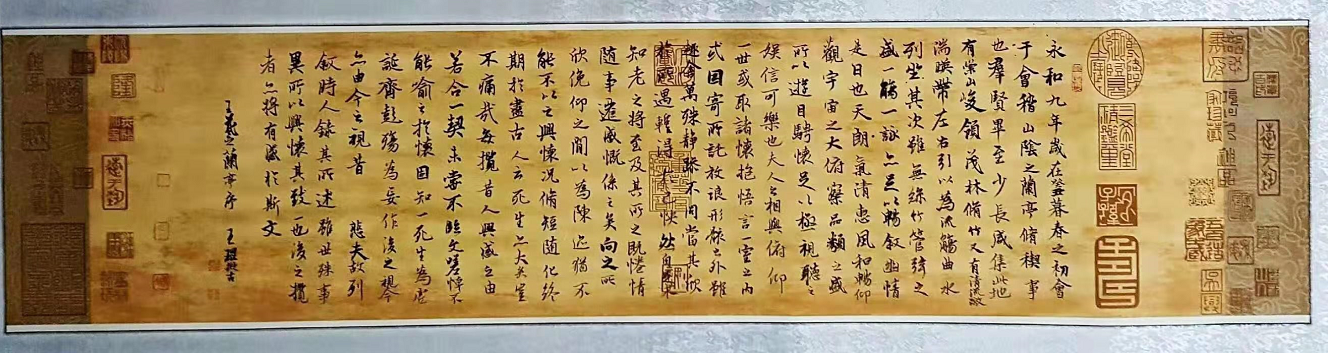 永和九年歲在癸丑暮春之初會
于會稽山陰之蘭亭脩稧事
也羣賢畢至少長咸集此地
有崇山峻領茂林脩竹又有清流激
湍暎帶左右引以為流觴曲水
列坐其次雖無絲竹管弦之
盛一觴一詠亦足以暢敘幽情
是日也天朗氣清惠風和暢仰
觀宇宙之大俯察品類之盛
所以遊目騁懷足以極視聽之
娛信可樂也夫人之相與俯仰
一世或取諸懷抱悟言一室之內
或因寄所託放浪形骸之外雖
趣舍萬殊静躁不同當其欣
所遇暫得於己快然自足
知老之將至及其所之既惓情
隨事遷感慨係之矣向之所
欣俛仰之間以為陳迹猶不
能不以之興懷況脩短隨化終
期於盡古人云死生亦大矣豈
不痛哉每攬昔人興感之由
若合一契未嘗不臨文嗟悼不
能喻之於懷固知一死生為虛
誕齊彭殤為妄作後之視今
亦由今之視昔 悲夫故列
敘時人錄其所述雖世殊事
異所以興懷其致一也後之攬
者亦將有感於斯文
王羲之蘭亭序 王